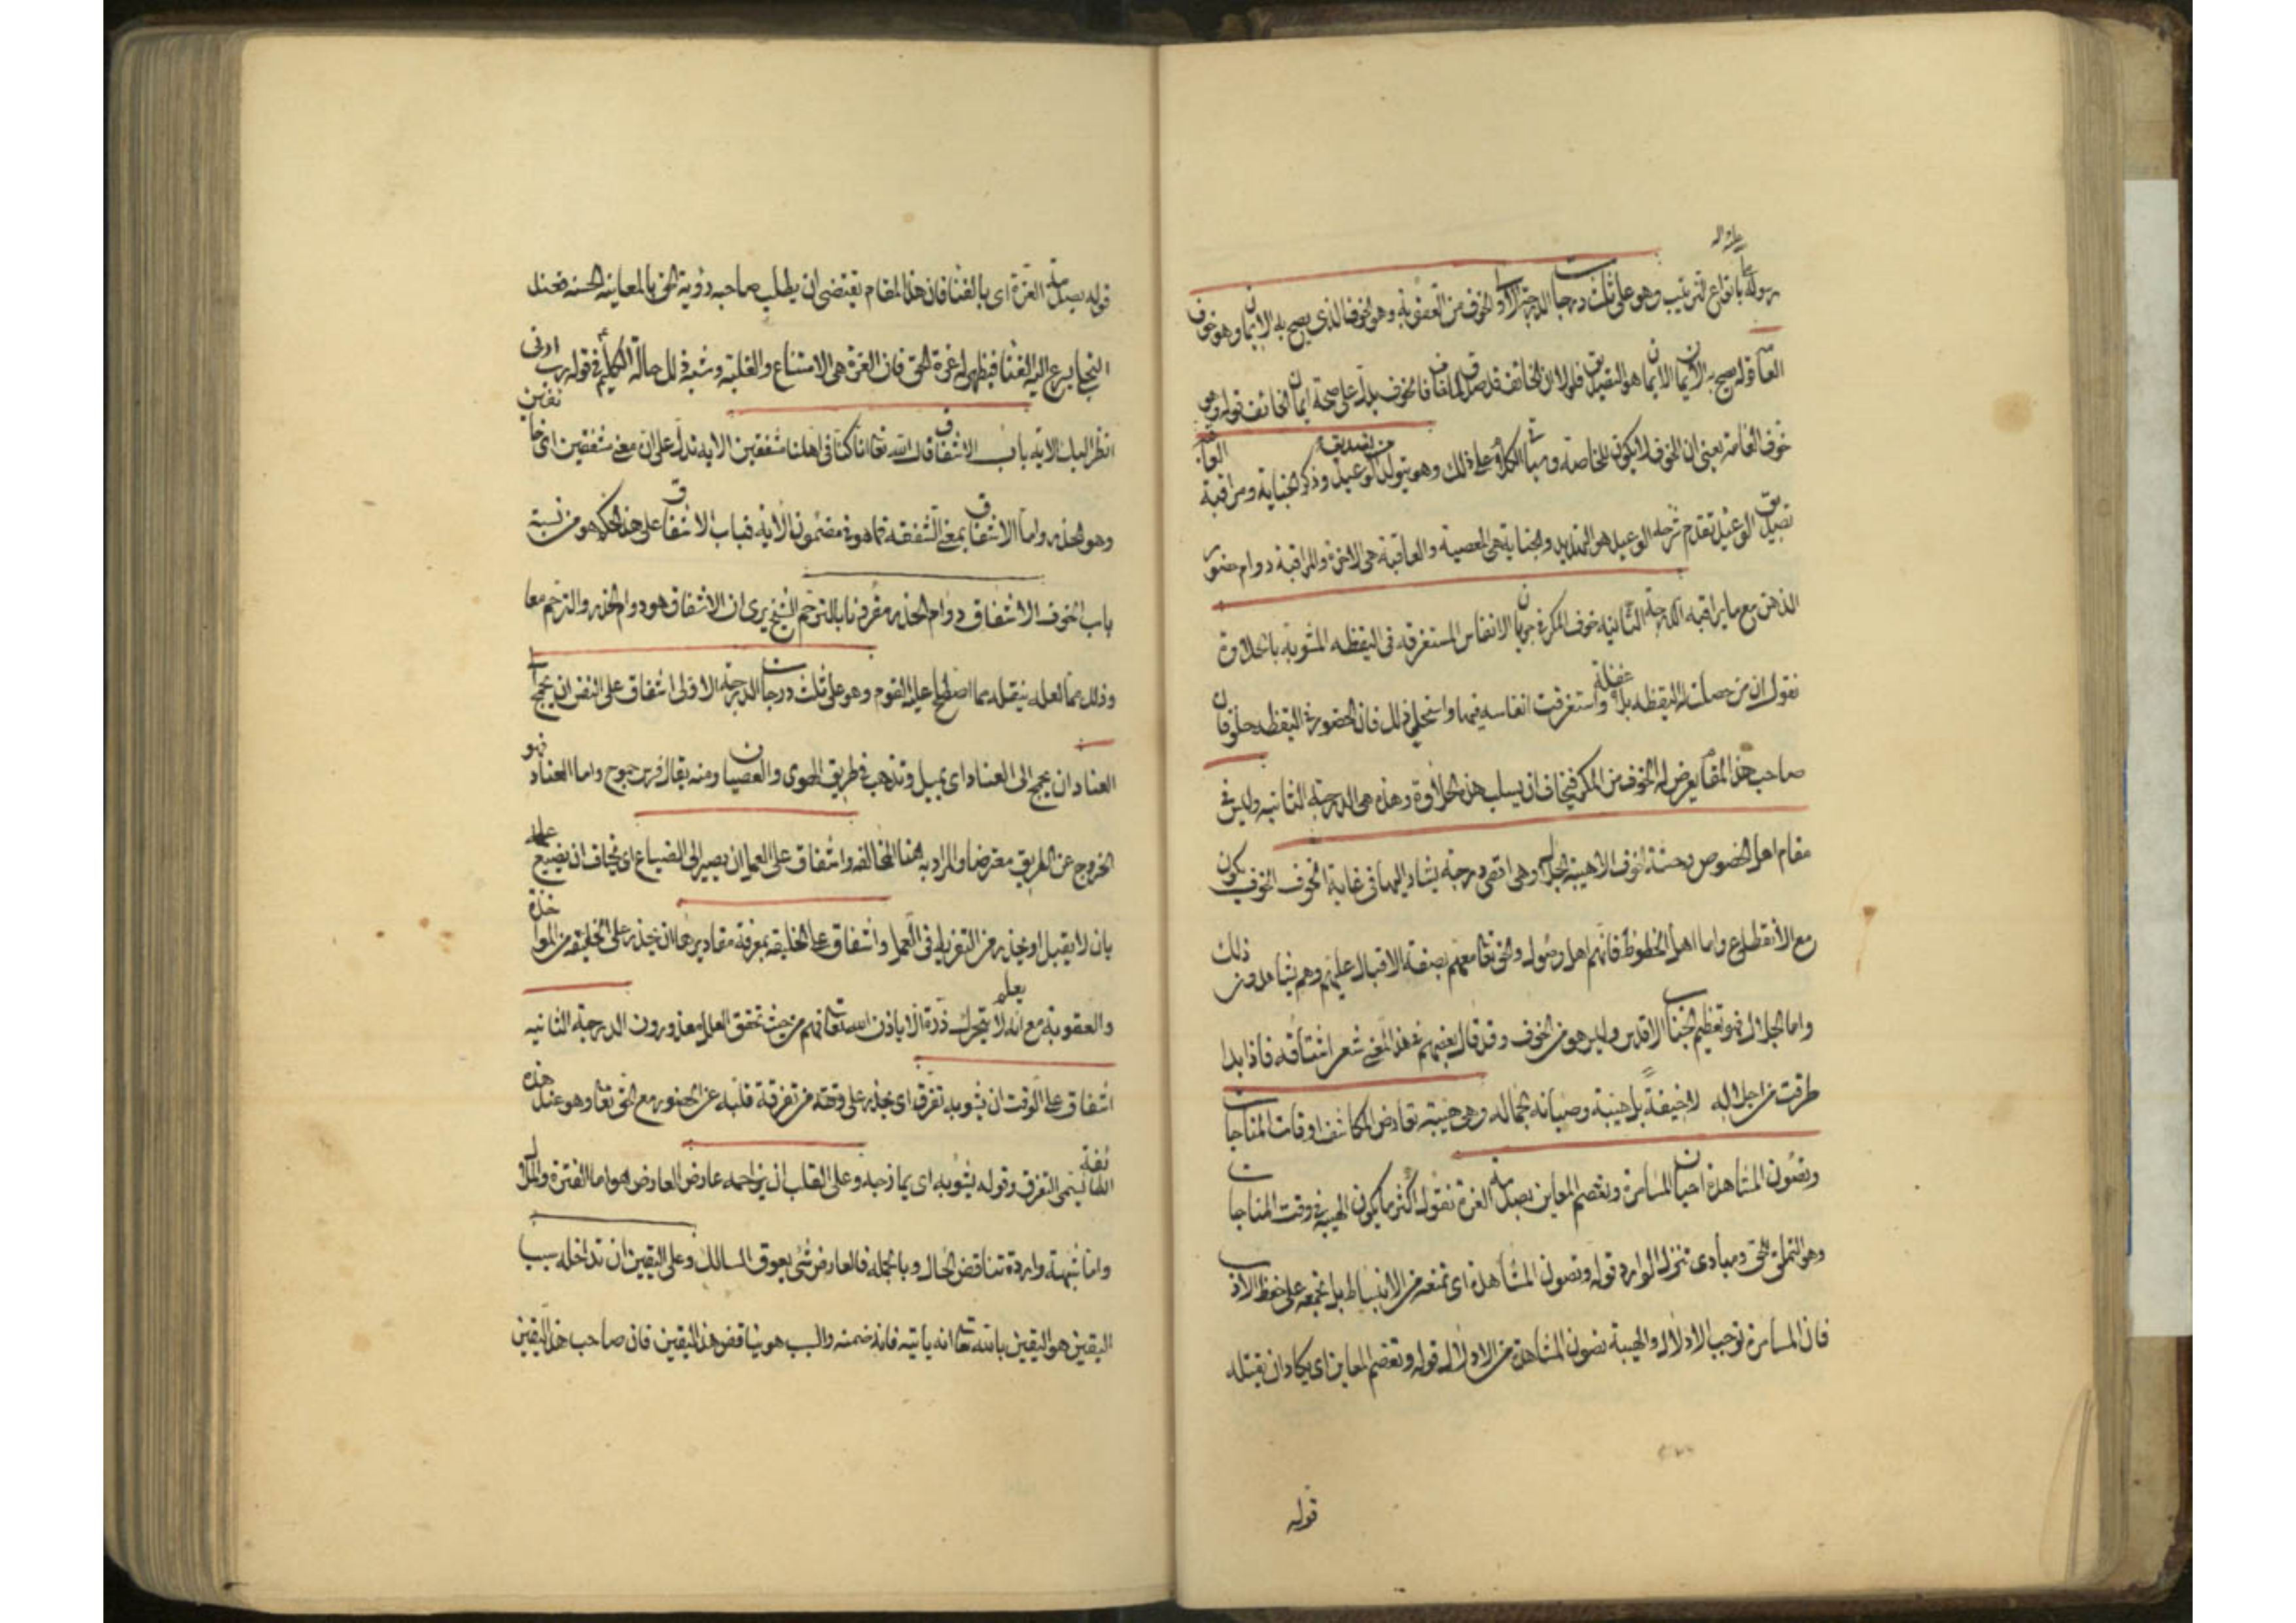 عليه واله
رسوله بانواع الترتيب وهو على ثلث درجات الدرجة الاولى الخوف من العقوبة وهو الخوف الذى يصح به الايمان وهو خوف
العامة قوله يصح به الايمان الايمان هو التصديق فلولا ان الخائف قد صدق لما خاف فالخوف يدل على صحة ايمان الخائف قوله وهو
خوف العامة يعنى ان الخوف لا يكون للخاصة وسياتى الكلام على ذلك وهو يتولد من تصديق الوعيد وذكر الجناية ومراقبة العاقبة
تصديق الوعيد تقدم شرحه الوعيد هو التهديد والجناية هى المعصية والعاقبة هى الاخرة والمراقبة دوام حضور
الذهن مع ما يراقبه الدرجة الثانية خوف المكر فى جريان الانفاس المستغرقة فى اليقظه المشوبة بالحلاوة
نقول ان من حصلت له اليقظه بلا غفلة واستغرقت انفاسه فيها واستحلى ذلك فان الحضور فى اليقظه حلو فان
صاحب هذا المقام يعرض له الخوف من المكر فيخاف ان يسلب هذه الحلاوة وهذه هى الدرجة الثانيه وليس فى
مقام اهل الخصوص وحشة الخوف الا هيبة الجلال وهى اقصى درجة يشار اليها فى غاية الخوف الخوف يكون
مع الانقطاع واما اهل الخطوظ فانهم اهل وصول والحق تعالى معهم بصفة الاقبال عليهم وهم يشاهدون ذلك
واما الجلال فهو تعظيم الجناب الاقدس وليس هو من الخوف وقد قال بعضهم فى هذا المعنى شعر اشتاقه فاذا بدا
طرقت من اجلاله لا خيفة بل هيبة وصيانة لجماله وهى هيبته تعارض المكاشف اوقات المناجات
وتصون المشاهد احيان المسامرة وتقصم المعاين بصدمة العزة نقول اكثر ما يكون الهيبة فى وقت المناجات
وهو التملق للحق ومبادى تنزل الوارد قوله وتصون المشاهد اى تمنعه من الانبساط بل تجمعه على حفظ الادب
فان المسامرة توجب الادلال والهيبة تصون المشاهد من الادلال قوله وتقصم المعاين اى يكاد ان يقتله
قوله
قوله بصدمة العزة اى بالفنا فان هذا المقام يقتضى ان يطلب صاحبه رؤية الحق بالمعاينه الحسنه فعند
التجلى يرجع اليه الفنا فيظهر له عزة الحق فان العزة هى الامتناع والغلبة وشبه فى ذلك حالة الكليم فى قوله رب ارنى
انظر اليك الاية باب الاشفاق قال الله تعالى انا كنا فى اهلنا مشفقين الاية تدل على ان معنى مشفقين اى خائفين
وهو الحذر واما الاشفاق بمعنى الشفقة فما هو فى مضمون الاية فباب الاشفاق على هذا الحكم هو من نسبة
باب الخوف الاشفاق دوام الحذر مقرونا بالترحم الشيخ يرى ان الاشفاق هو دوام الحذر والترحم معا
وذلك مما لعله ينقله مما اصطلح عليه القوم وهو على ثلث درجات الدرجة الاولى اشفاق على النفس ان يجمح الى
العناد ان يجمح الى العناد اى يميل وتذهب فى طريق الهوى والعصيان ومنه يقال فرس جموح واما العناد فهو
الخروج عن الطريق معترضا والمراد به هنا المخالفه واشفاق على العمل ان يصير الى الضياع اى يخاف ان يضيع عمله
بان لا يقبل او يحذر من التفريط فى العمل واشفاق على الخليقة بمعرفة مقاديرها ان يحذر على الخليقة من المواخذة
والعقوبة مع انه يعلم لا يتحرك ذرة الا باذن الله تعالى فهم من حيث تحقق العلم معذورون الدرجة الثانيه
اشفاق على الوقت ان يشوبه تفرق اى يحذر على وقته من تفرقة قلبه عن الحضور مع الحق تعالى وهو عند هذه
الطائفة يسمى التفرق وقوله يشوبه اى يمازجه وعلى القلب ان يزاحمه عارض العارض هو اما الفترة والملال
واما شبهة واردة تناقض الحال وبالجمله فالعارض شئ يعوق السالك وعلى اليقين ان تداخله سبب
اليقين هو اليقين بالله تعالى انه ياتيه فانه ضمنه والسبب هو يناقض هذا اليقين فان صاحب هذا اليقين